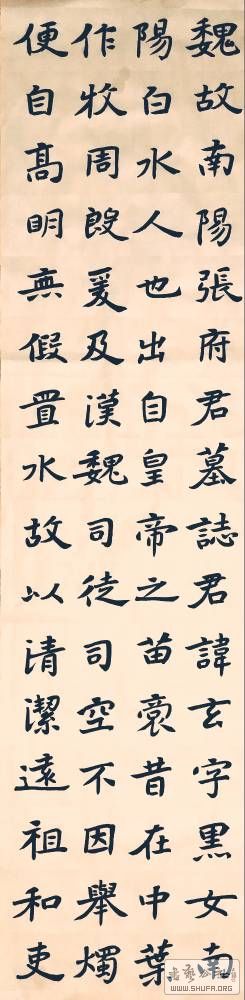 魏故南陽張府君墓誌君諱玄字黑女南
陽白水人也出自皇帝之苗裔昔在中葉
作牧周殷爰及漢魏司徒司空不因舉燭
便自高明無假置水故以清潔遠祖和吏
WWW.SHUFA.ORG